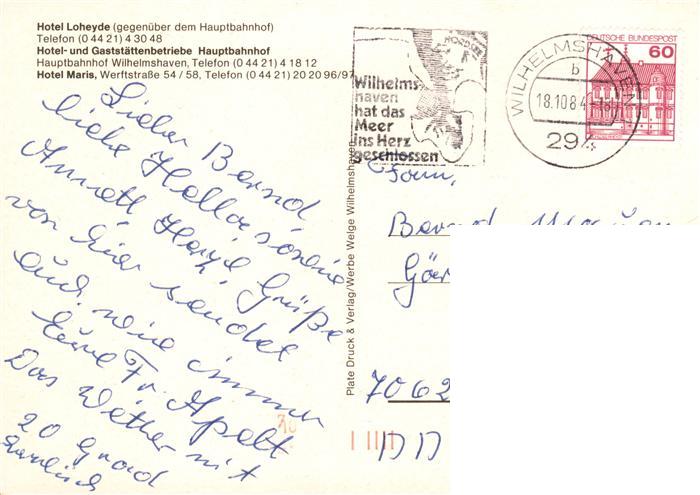 Hotel Loheyde (gegenüber dem Hauptbahnhof)
Telefon (0 44 21) 4 30 48
Hotel- und Gaststättenbetriebe Hauptbahnhof
Hauptbahnhof Wilhelmshaven, Telefon (0 44 21) 4 18 12
Hotel Maris, Werftstraße 54 / 58, Telefon (0 44 21) 20 20 96/97
Lieber Bernd
liebe
Annett Herzl. Grüße
von hier sendet
auch wie immer
Eure Fr. Apelt
Das Wetter mit
20 Grad
herrlich
Plate Druck & Verlag/Werbe Welge Wilhelmshaven
NORDSEE
Wilhelms-
haven
hat das
Meer
ins Herz
geschlossen
WILHELMSHAVEN
b
18.10.84
294
DEUTSCHE BUNDESPOST
60
Fam.
Bernd
Gär
7062
DD
10